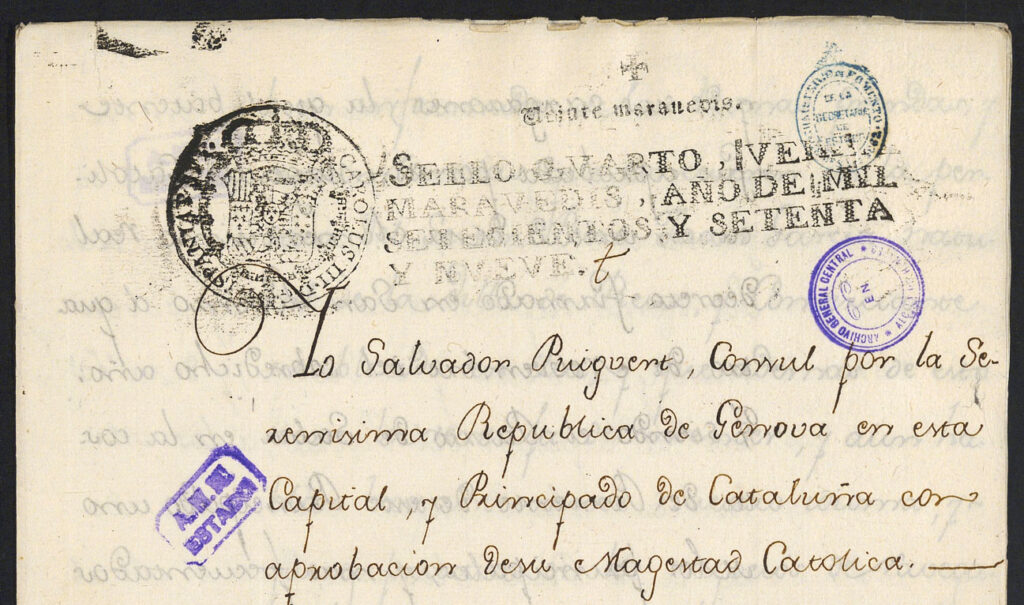 Veinte maravedis.
SELLO QVARTO, VEINTE
MARAVEDIS, AÑO DE MIL
SETECIENTOS Y SETENTA
Y NVEVE.
CAROLUS III D
ARCHIVO GENERAL CENTRAL
EN
Yo Salvador Puigvert, Consul por la Se-
renisima Republica de Genova en esta
Capital, y Principado de Cataluña con
aprobacion de su Magestad Catolica.
A.H.N
ESTADO